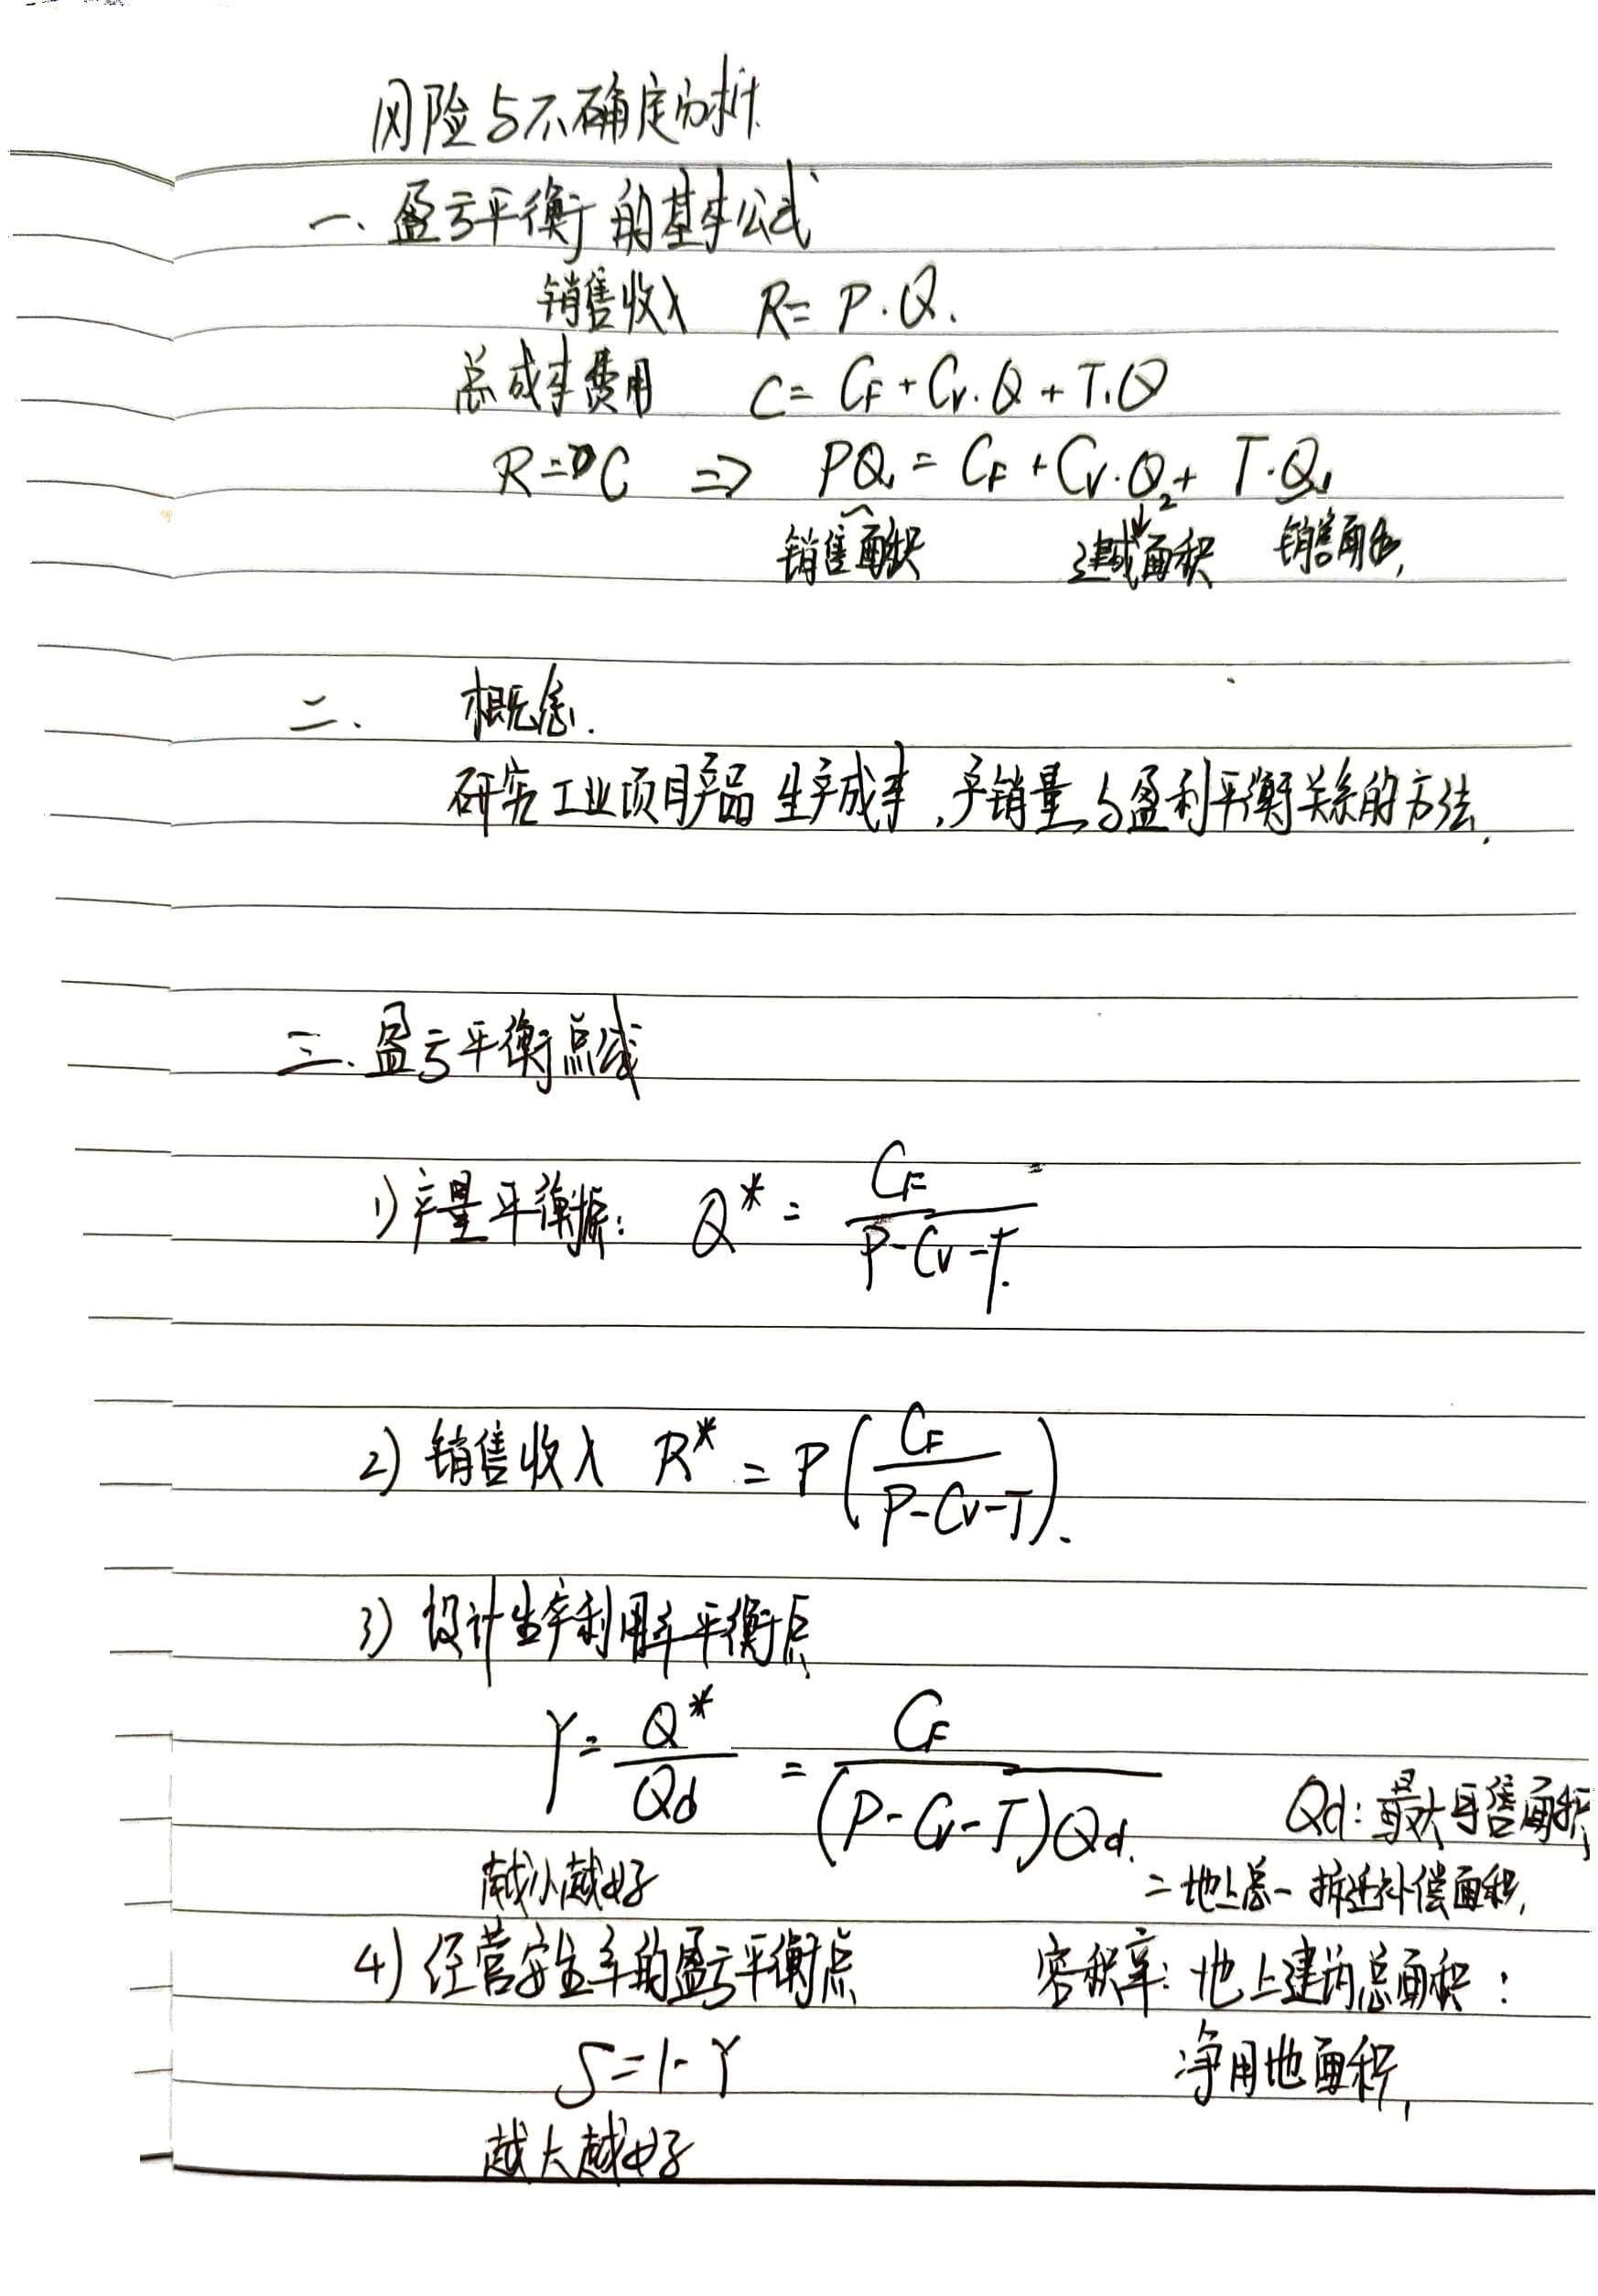 风险与不确定分析
一、盈亏平衡的基本公式
销售收入 R = P·Q.
总成本费用 C = CF + Cv·Q + T·Q
R = C ⇒ PQ₁ = CF + Cv·Q₂ + T·Q₁
销售面积 建成面积 销售面积
二、 概念.
研究工业项目产品生产成本,产销量与盈利平衡关系的方法.
三、盈亏平衡点公式
1) 产量平衡点: Q* = CF / (P-Cv-T)
2) 销售收入 R* = P(CF / (P-Cv-T)).
3) 设计生产利用率平衡点
γ = Q* / Qd = CF / ((P-Cv-T)Qd)
Qd: 最大可售面积
越小越好
= 地上总 - 拆迁补偿面积,
4) 经营安全率的盈亏平衡点
容积率: 地上建筑总面积:
S = 1-γ
净用地面积
越大越好